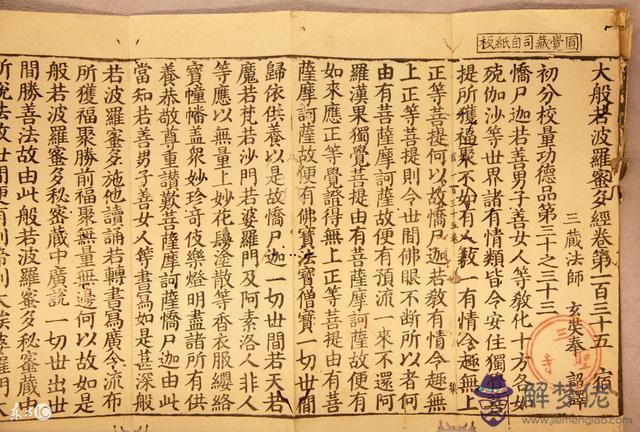 圓覺藏司自紙板
大般若波羅蜜多經卷第一百三十五 宿
三藏法師 玄奘奉 詔譯
初分校量功德品第三十之三十三
憍尸迦若善男子善女人等教化十方各如
殑伽沙等世界諸有情類皆令安住獨覺菩
提所獲福聚不如有人教一有情令趣無上
正等菩提何以故憍尸迦若教有情令趣無
上正等菩提則令世間佛眼不斷所以者何
由有菩薩摩訶薩故便有預流一來不還阿
羅漢果獨覺菩提由有菩薩摩訶薩故便有
如來應正等覺證得無上正等菩提由有菩
薩摩訶薩故便有佛寶法寶僧寶一切世間
歸依供養以是故憍尸迦一切世間若天若
魔若梵若沙門若婆羅門及阿素洛人非人
等應以無量上妙花鬘塗散等香衣服纓絡
寶幢幡蓋眾妙珍奇伎樂燈明盡諸所有供
養恭敬尊重讚歎菩薩摩訶薩憍尸迦由此
當知若善男子善女人等書寫如是甚深般
若波羅蜜多施他讀誦若轉書寫廣令流布
所獲福聚勝前福聚無量無邊何以故如是
般若波羅蜜多秘密藏中廣說一切世出世
間勝善法故由此般若波羅蜜多秘密藏中
所說法故世間便有剎帝利大族婆羅門
解梦佬
www.jiemenglao.com